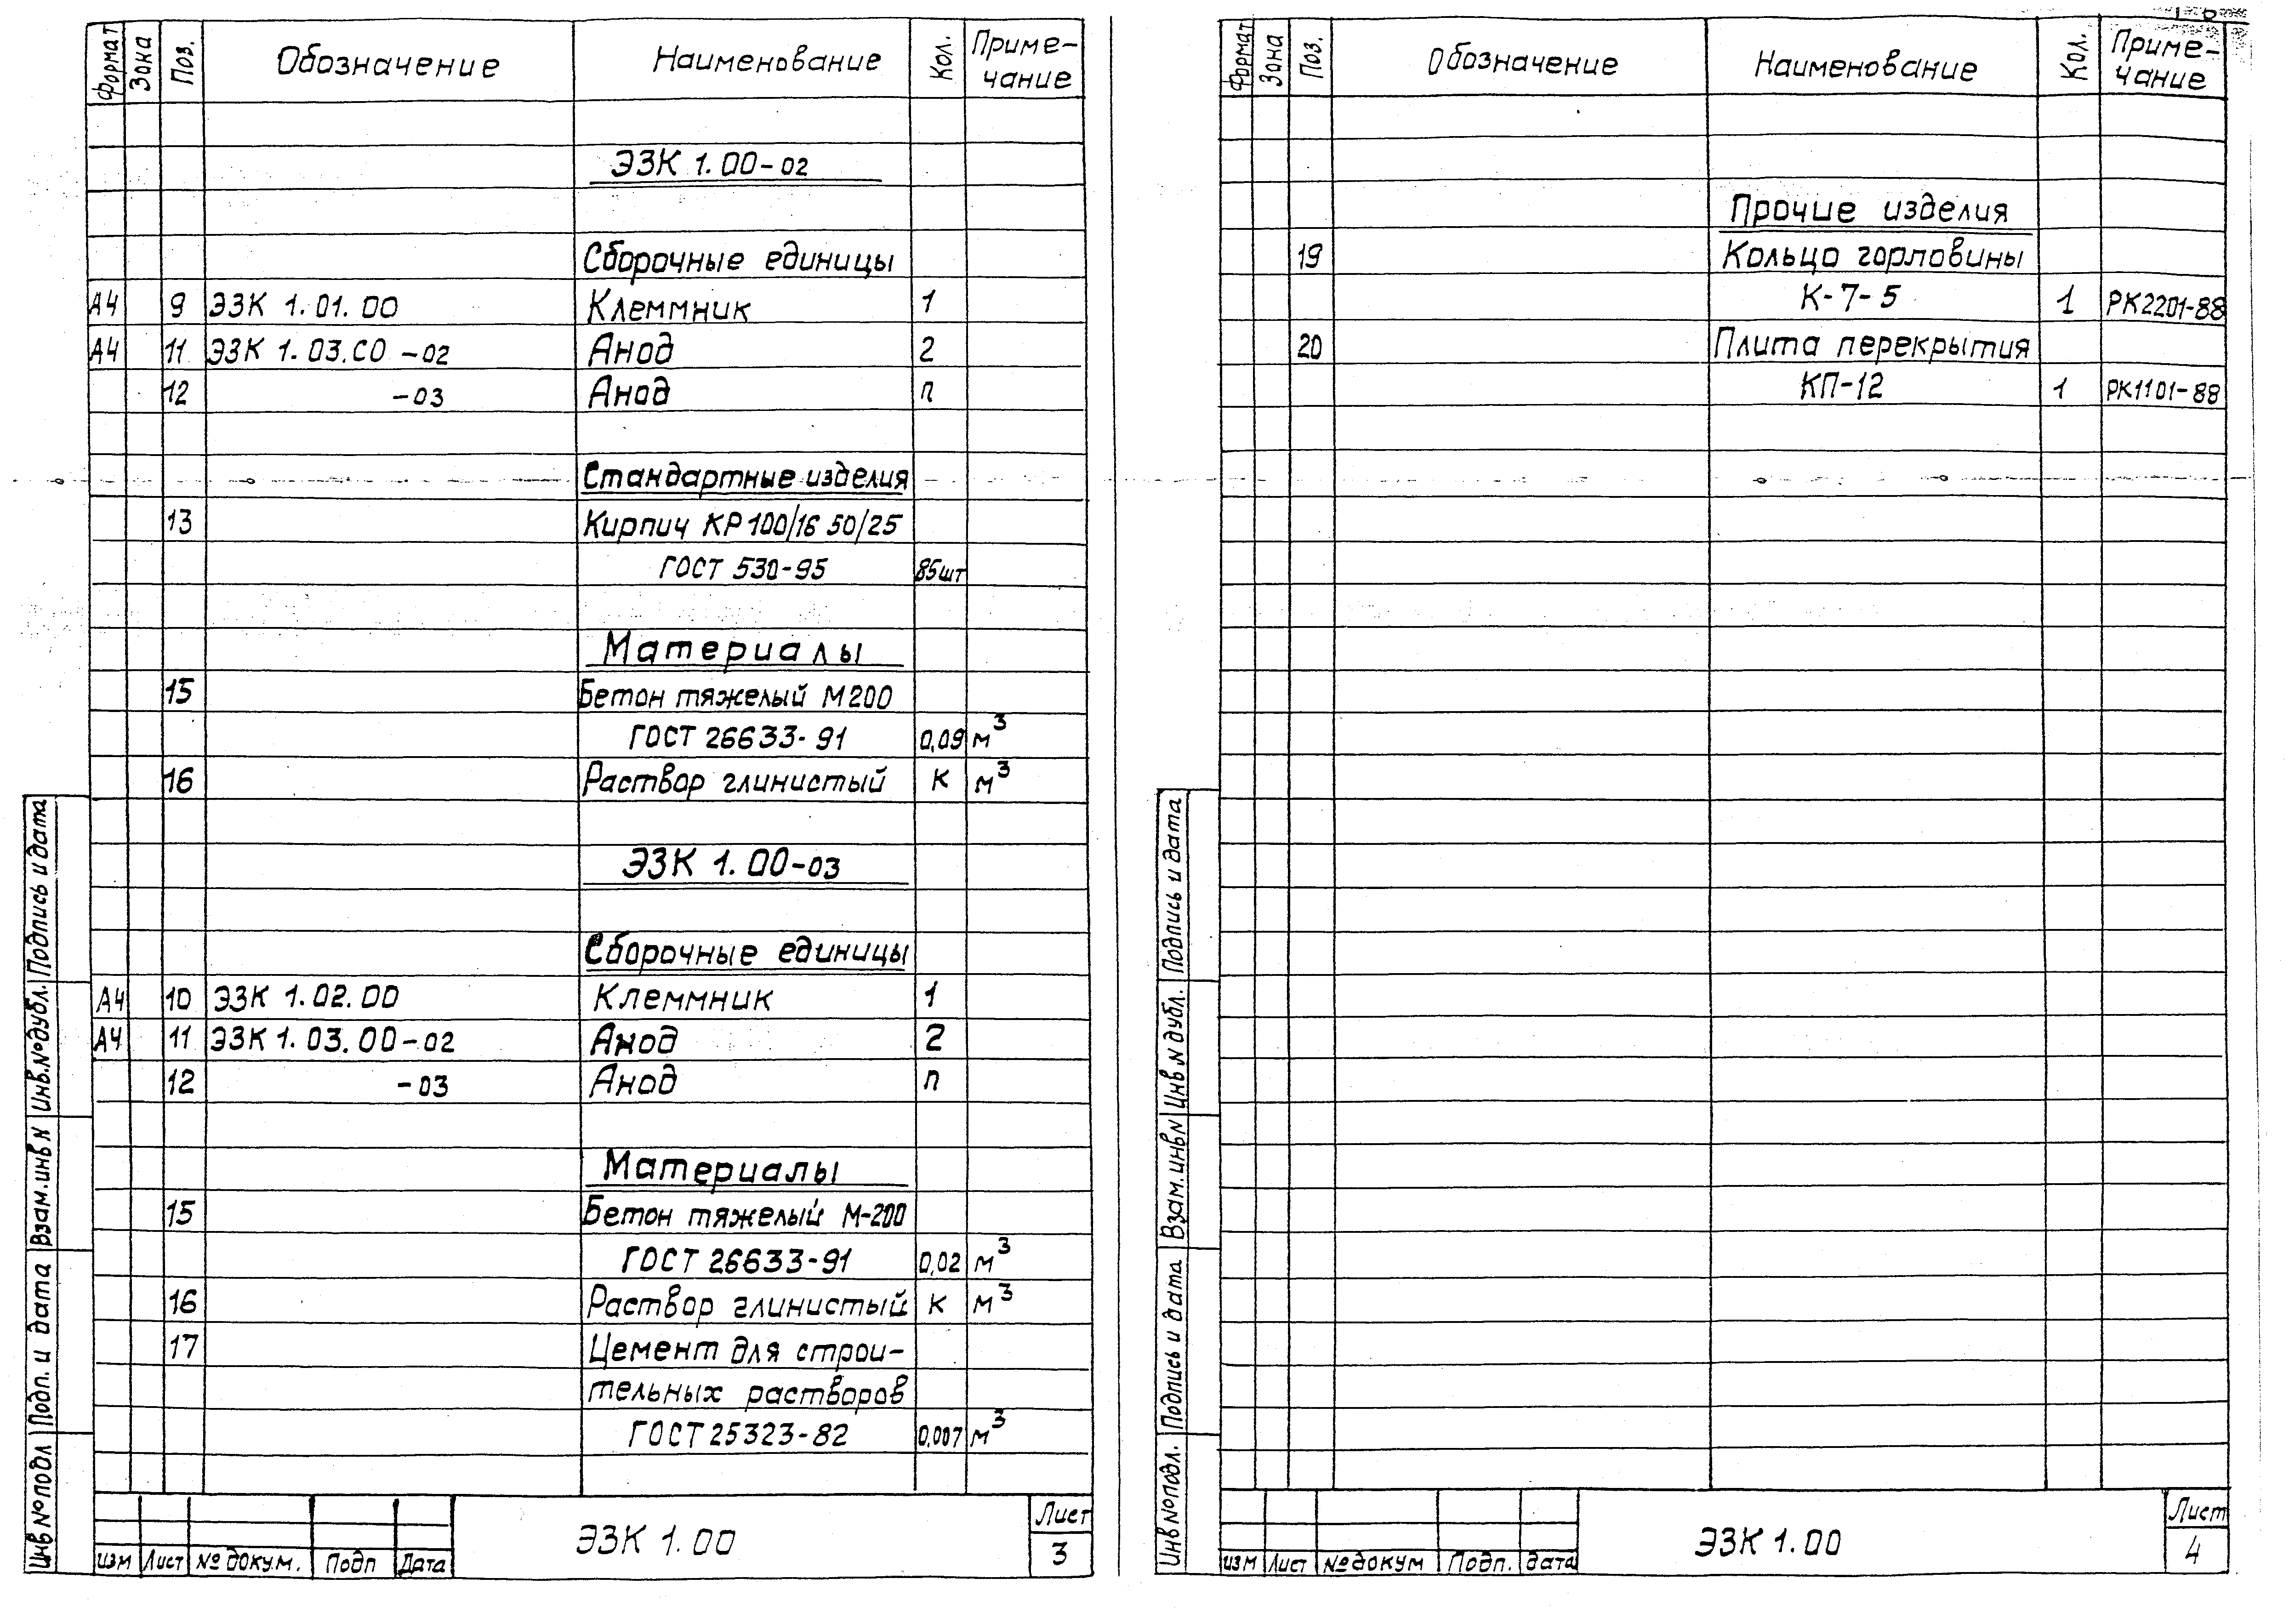 Формат Зона Поз. Обозначение Наименование Кол. Приме-
чание
ЭЗК 1.00-02
Сборочные единицы
А4 9 ЭЗК 1.01.00 Клеммник 1
А4 11 ЭЗК 1.03.СО -02 Анод 2
12 -03 Анод п
Стандартные изделия
13 Кирпич КР 100/16 50/25
ГОСТ 530-95 85шт
Материалы
15 Бетон тяжелый М200
ГОСТ 26633-91 0,09 м³
16 Раствор глинистый К м³
ЭЗК 1.00-03
Сборочные единицы
А4 10 ЭЗК 1.02.00 Клеммник 1
А4 11 ЭЗК 1.03.00-02 Анод 2
12 -03 Анод п
Материалы
15 Бетон тяжелый М-200
ГОСТ 26633-91 0,02 м³
16 Раствор глинистый К м³
17 Цемент для строи-
тельных растворов
ГОСТ 25323-82 0,007 м³
Инв №подл Подп. и дата Взам.инв N Инв.№дубл. Подпись и дата
изм Лист № докум. Подп Дата
ЭЗК 1.00
Лист
3
Формат Зона Поз. Обозначение Наименование Кол. Приме-
чание
Прочие изделия
19 Кольцо горловины
К-7-5 1 РК2201-88
20 Плита перекрытия
КП-12 1 РК1101-88
Инв №подл. Подпись и дата Взам.инв N Инв N дубл. Подпись и дата
изм Лист №докум Подп. дата
ЭЗК 1.00
Лист
4